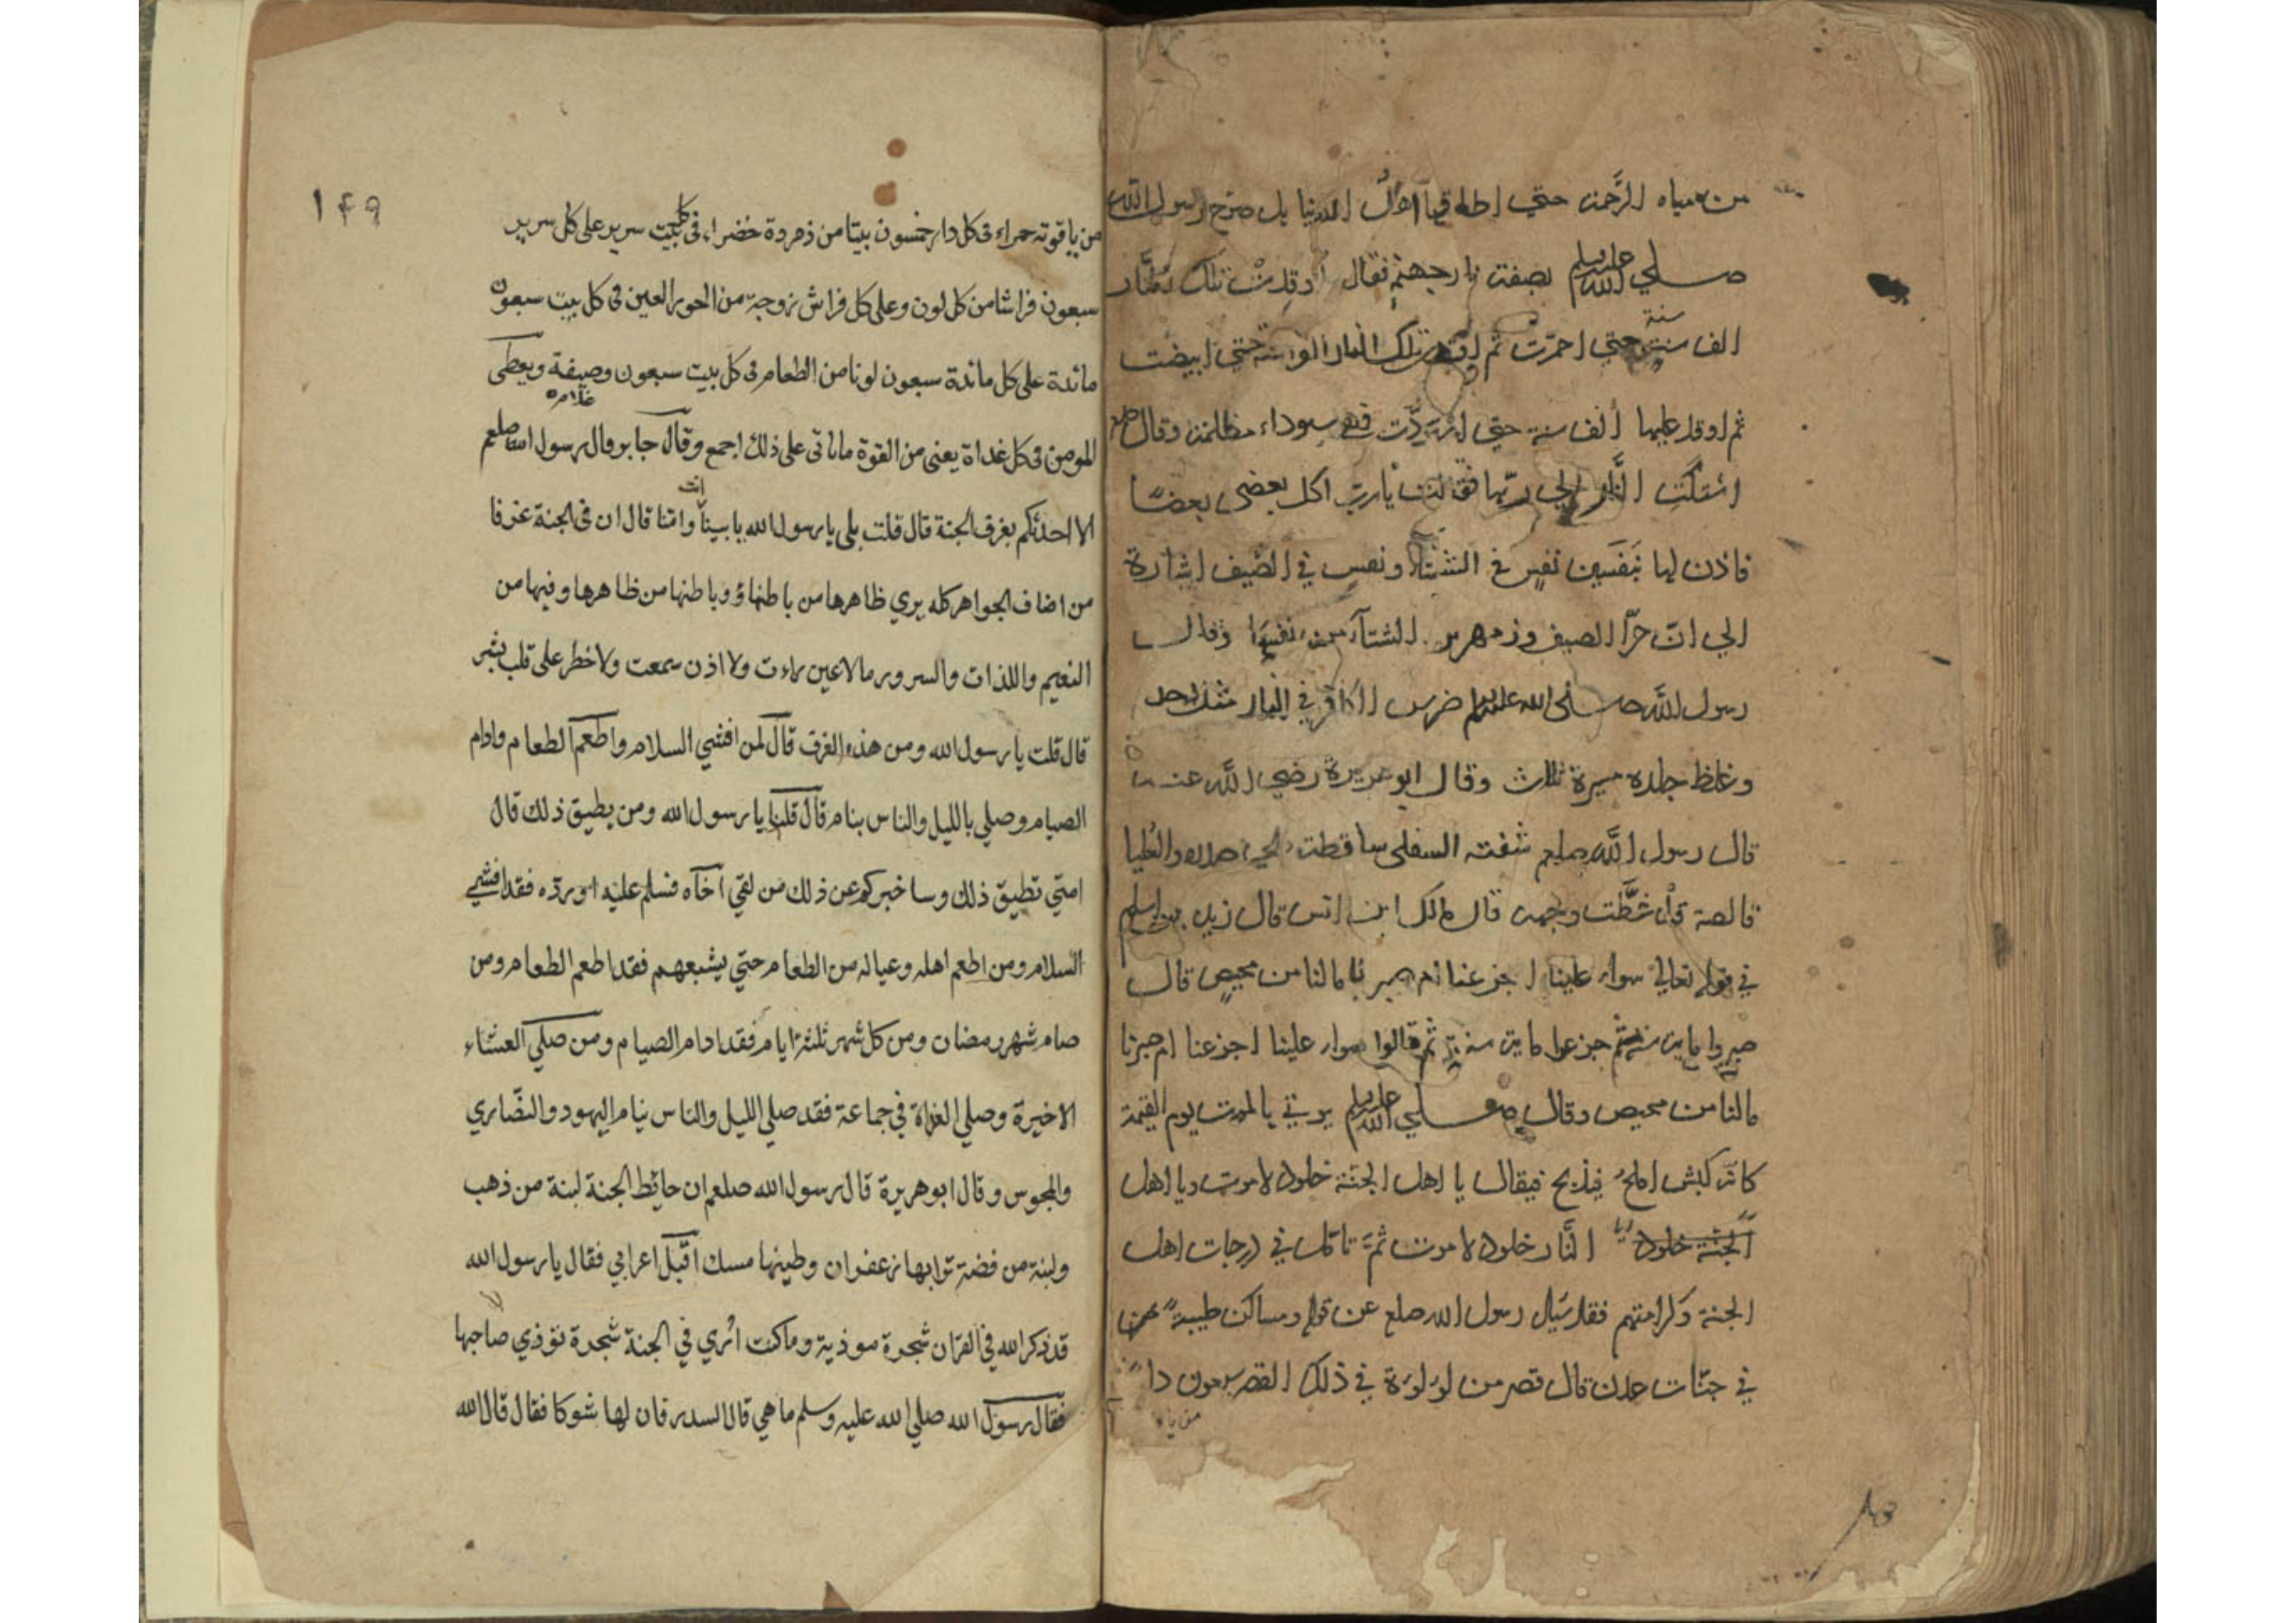 من مياه الرحمة حتي اطاقها اهل الدنيا بل صرح رسول الله
صلي الله عليه وسلم بصفت نار جهنم فقال اوقدت تلك النار
الف سنة حتي احمرت ثم اوقد تلك النار الف سنة حتي ابيضت
ثم اوقد عليها الف سنة حتي اسودت فهي سوداء مظلمة وقال صلعم
اشتكت النار الي ربها فقالت يا رب اكل بعضي بعضا
فاذن لها بنفسين نفس في الشتآ ونفس في الصيف اشارة
الي ان حر الصيف وزمهرير الشتآ من نفسها وقال
رسول الله صلى الله عليه وسلم ضرس الكافر في النار مثل احد
وغلظ جلده مسيرة ثلاث وقال ابو هريرة رضي الله عنه
قال رسول الله صلعم شفته السفلى ساقطت الي صدره والعليا
قالصة قد غطت وجهه قال مالك ابن انس قال زيد بن اسلم
في قوله تعالي سواء علينا اجزعنا ام صبرنا مالنا من محيص قال
صبروا ماية سنة ثم جزعوا ماية سنة ثم قالوا سواء علينا اجزعنا ام صبرنا
مالنا من محيص وقال صلي الله عليه وسلم يوتي بالموت يوم القيمة
كانه كبش املح فيذبح فيقال يا اهل الجنة خلود لا موت ويا اهل
الجنة خلود يا النار خلود لا موت ثم تامل في درجات اهل
الجنة وكرامتهم فقد سيل رسول الله صلعم عن قوله ومساكن طيبة
في جنات عدن قال قصر من لولوة في ذلك القصر سبعون دا
من يا
١٤٩
من ياقوته حمراء فى كل دار خمسون بيتا من زمردة خضراء فى كل بيت سرير على كل سرير
سبعون فراشا من كل لون وعلى كل فراش زوجة من الحور العين فى كل بيت سبعون
مائدة على كل مائدة سبعون لونا من الطعام فى كل بيت سبعون وصيفة ويعطى
المومن فى كل غداة يعنى من القوة ما ياتى على ذلك اجمع وقال جابر قال رسول الله صلعم
الا احدثكم بغرف الجنة قال قلت بلى يا رسول الله بابينا انت وامنا قال ان فى الجنة غرفا
من اصناف الجواهر كله يري ظاهرها من باطنها وباطنها من ظاهرها وفيها من
النعيم واللذات والسرور ما لا عين راءت ولا اذن سمعت ولا خطر على قلب بشر
قال قلت يا رسول الله ومن هذه الغرف قال لمن افشي السلام واطعم الطعام وادام
الصيام وصلي بالليل والناس ينام قال قلنا يا رسول الله ومن يطيق ذلك قال
امتي تطيق ذلك وساخبركم عن ذلك من لقي اخاه فسلم عليه او رده فقد افشي
السلام ومن اطعم اهله وعياله من الطعام حتي يشبعهم فقد اطعم الطعام ومن
صام شهر رمضان ومن كل شهر ثلثة ايام فقد ادام الصيام ومن صلي العشاء
الاخيرة وصلي الغداة في جماعة فقد صلي الليل والناس نيام اليهود والنصاري
والمجوس وقال ابو هريرة قال رسول الله صلعم ان حائط الجنة لبنة من ذهب
ولبنة من فضة ترابها زعفران وطينها مسك اقبل اعرابي فقال يا رسول الله
قد ذكر الله في القران شجرة موذية وما كنت اري في الجنة شجرة توذي صاحبها
فقال رسول الله صلي الله عليه وسلم ما هي قال السدر فان لها شوكا فقال قال الله